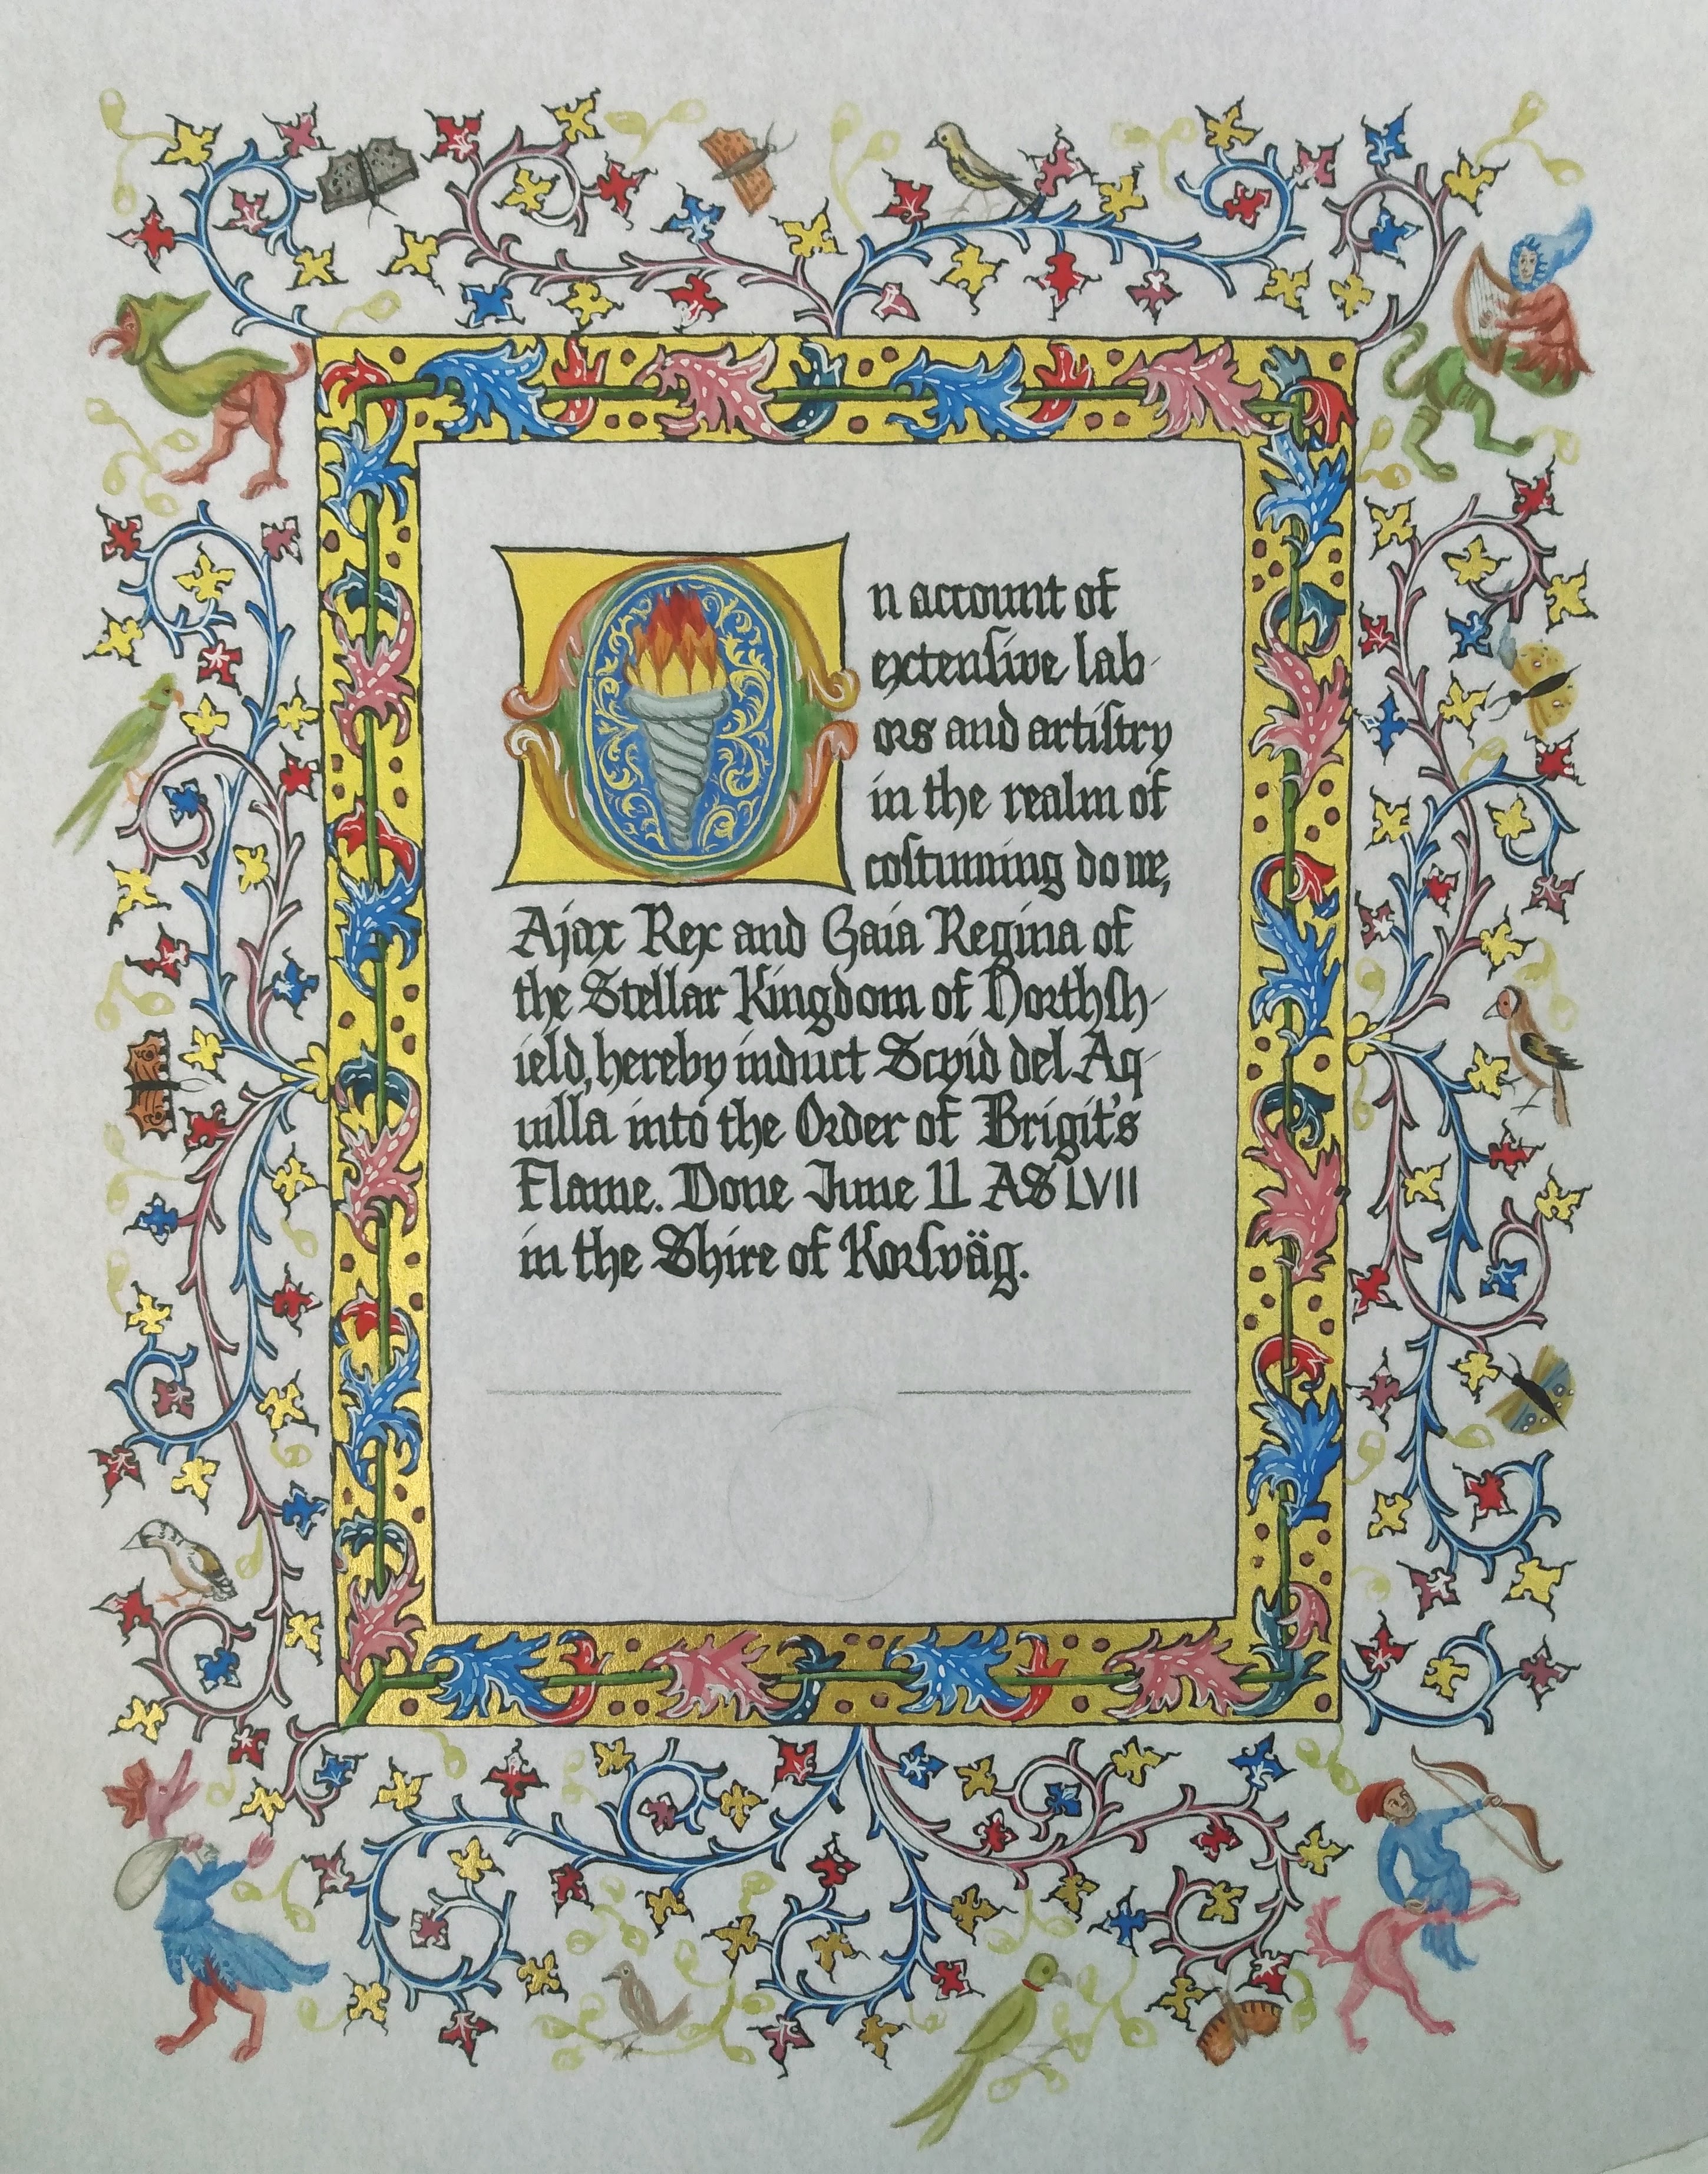 On account of
extensive lab-
ors and artistry
in the realm of
costuming done,
Ajax Rex and Gaia Regina of
the Stellar Kingdom of Northsh-
ield, hereby induct Scyid del Aq-
uilla into the Order of Brigit's
Flame. Done June 11 AS LVII
in the Shire of Korsväg.